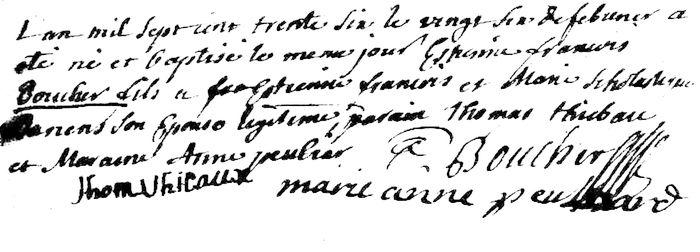 L an mil sept cent trente six le vingt six de febvrier a
eté né et baptisé le meme jour Estienne francois
Boucher fils a Estienne francois et Marie Scholastique
son Epouse legitime, parain Thomas thiebau
et Maraine Anne peulier
Boucher
Thom
marie anne